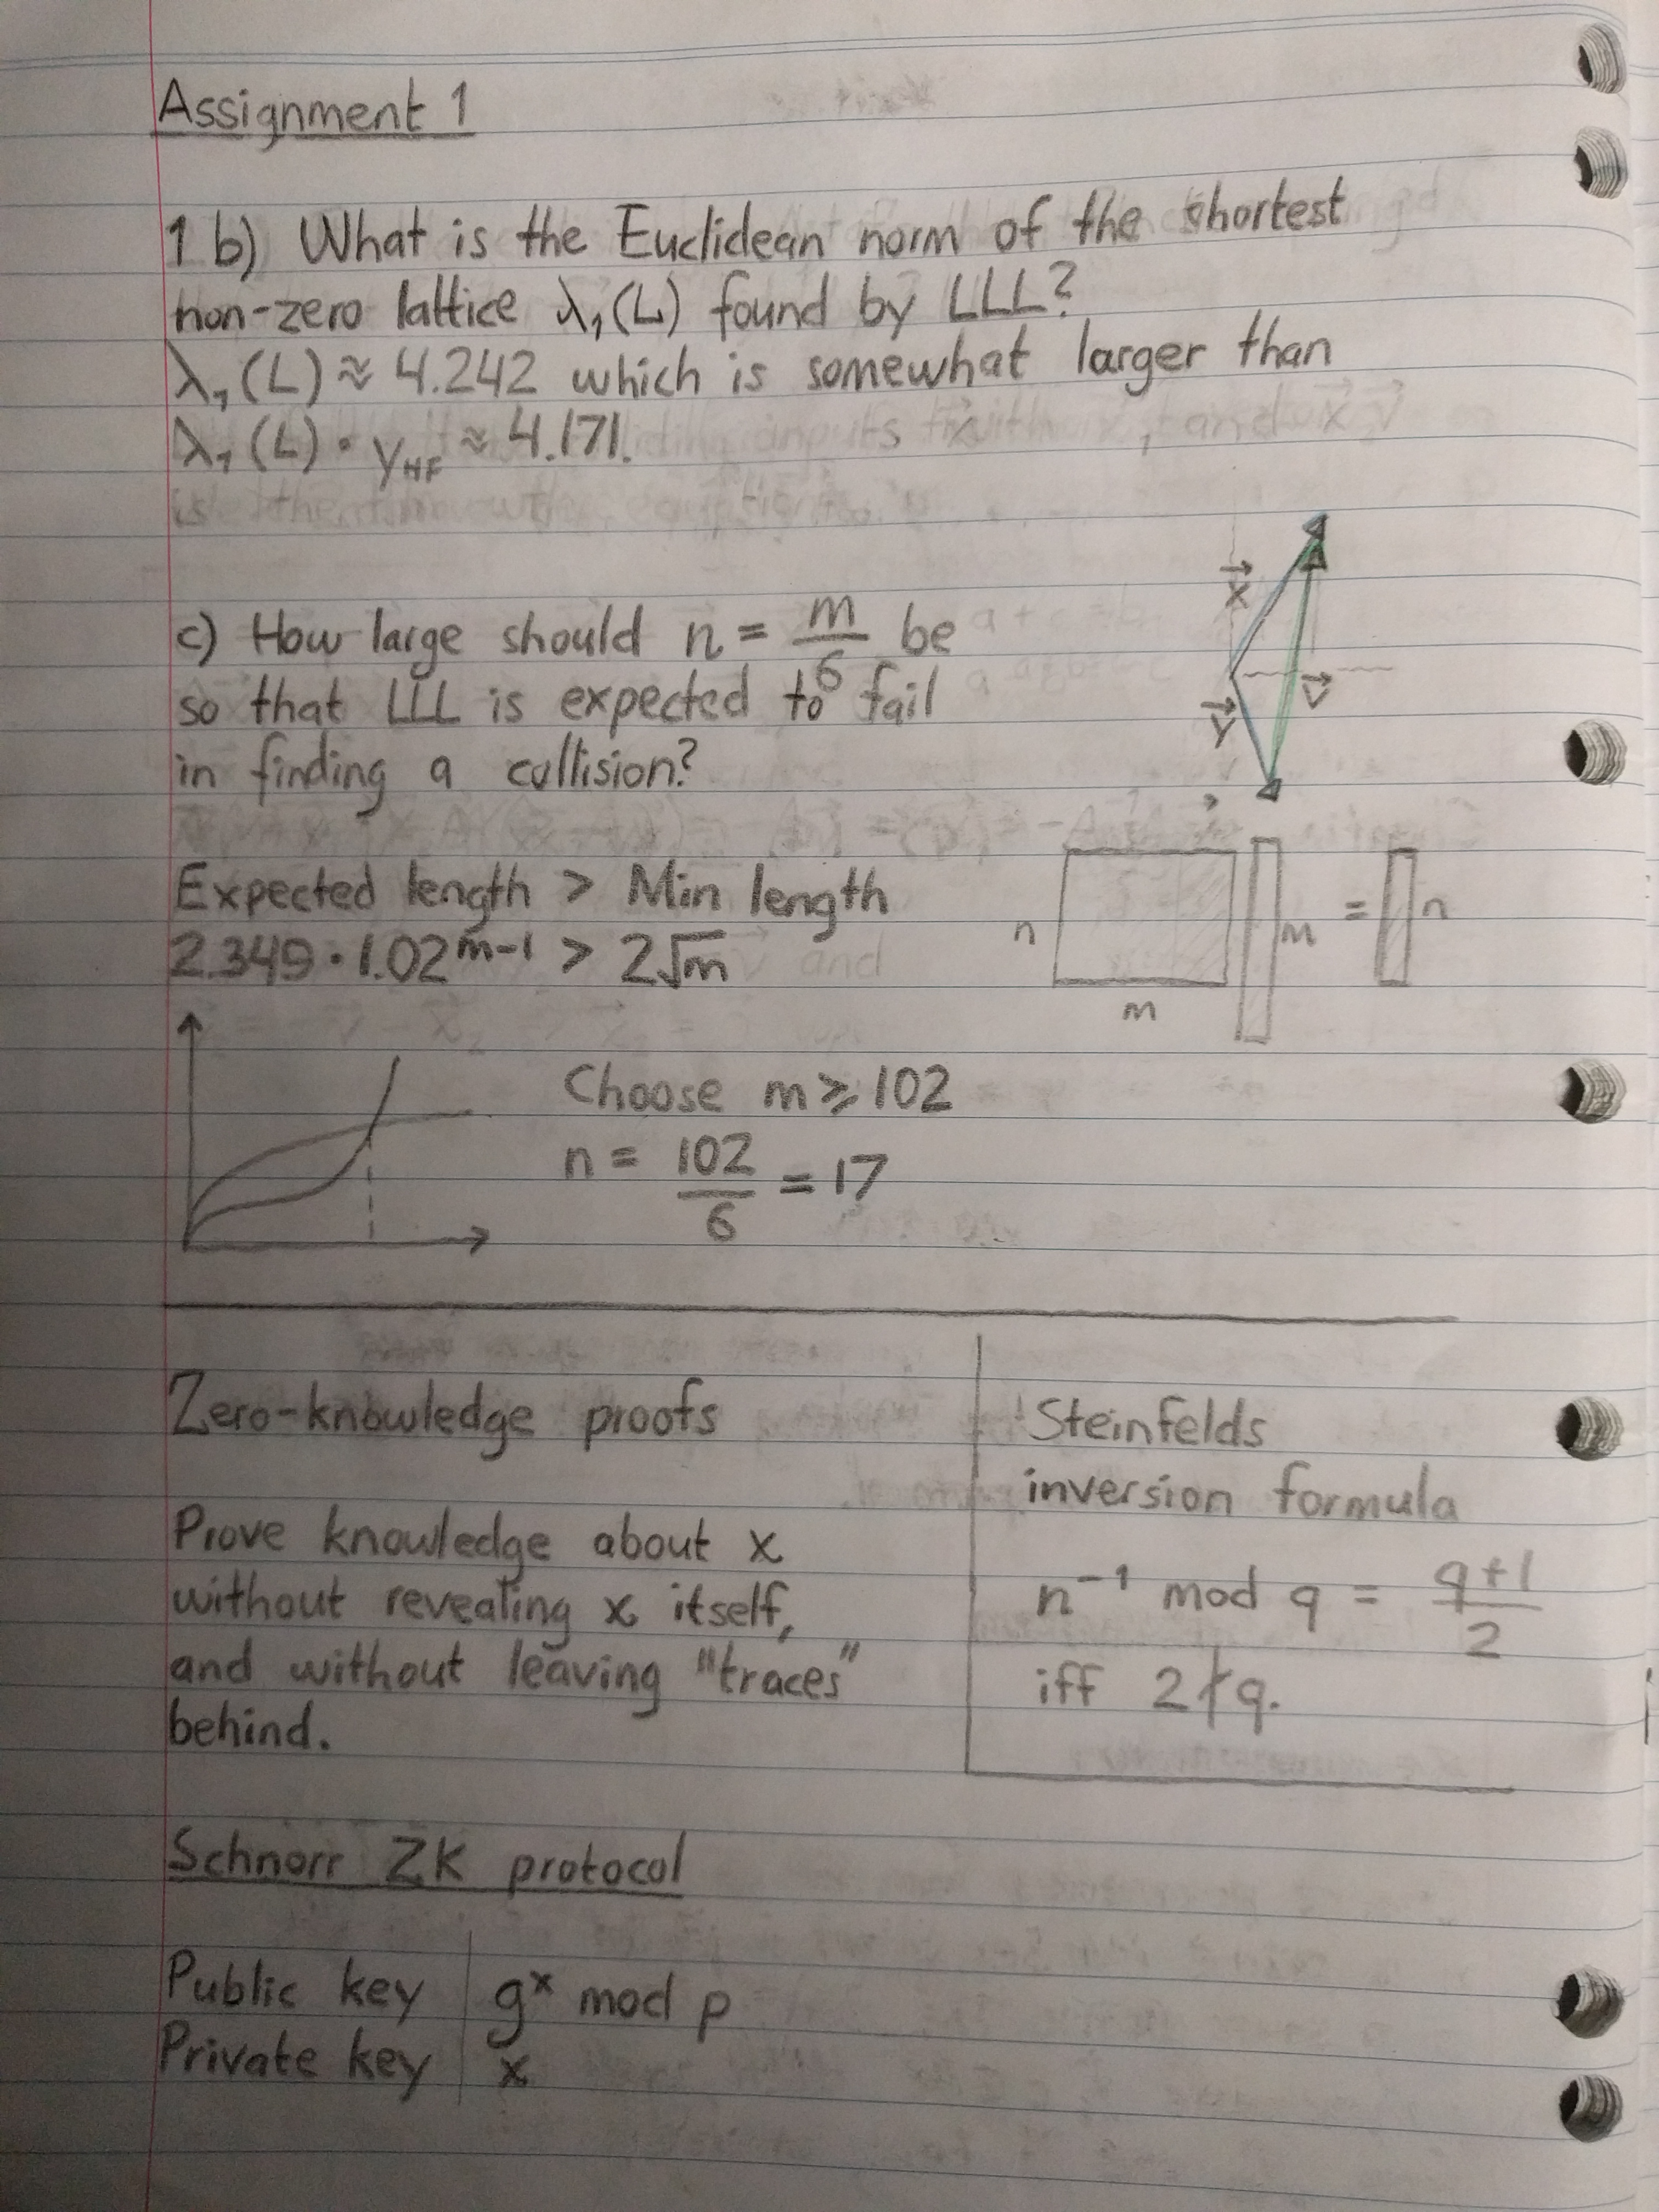 Assignment 1
1 b) What is the Euclidean norm of the shortest
non-zero lattice λ₁(L) found by LLL?
λ₁(L) ≈ 4.242 which is somewhat larger than
λ₁(L) · γ_HF ≈ 4.171.
c) How large should n = m/6 be
so that LLL is expected to fail
in finding a collision?
x⃗
y⃗
v⃗
Expected length > Min length
2.349 · 1.02^(m-1) > 2√m
n
m
m
=
n
Choose m ⩾ 102
n = 102/6 = 17
Zero-knowledge proofs
Prove knowledge about x
without revealing x itself,
and without leaving "traces"
behind.
Steinfelds
inversion formula
n⁻¹ mod q = (q+1)/2
iff 2∤q.
Schnorr ZK protocol
Public key | gˣ mod p
Private key | x